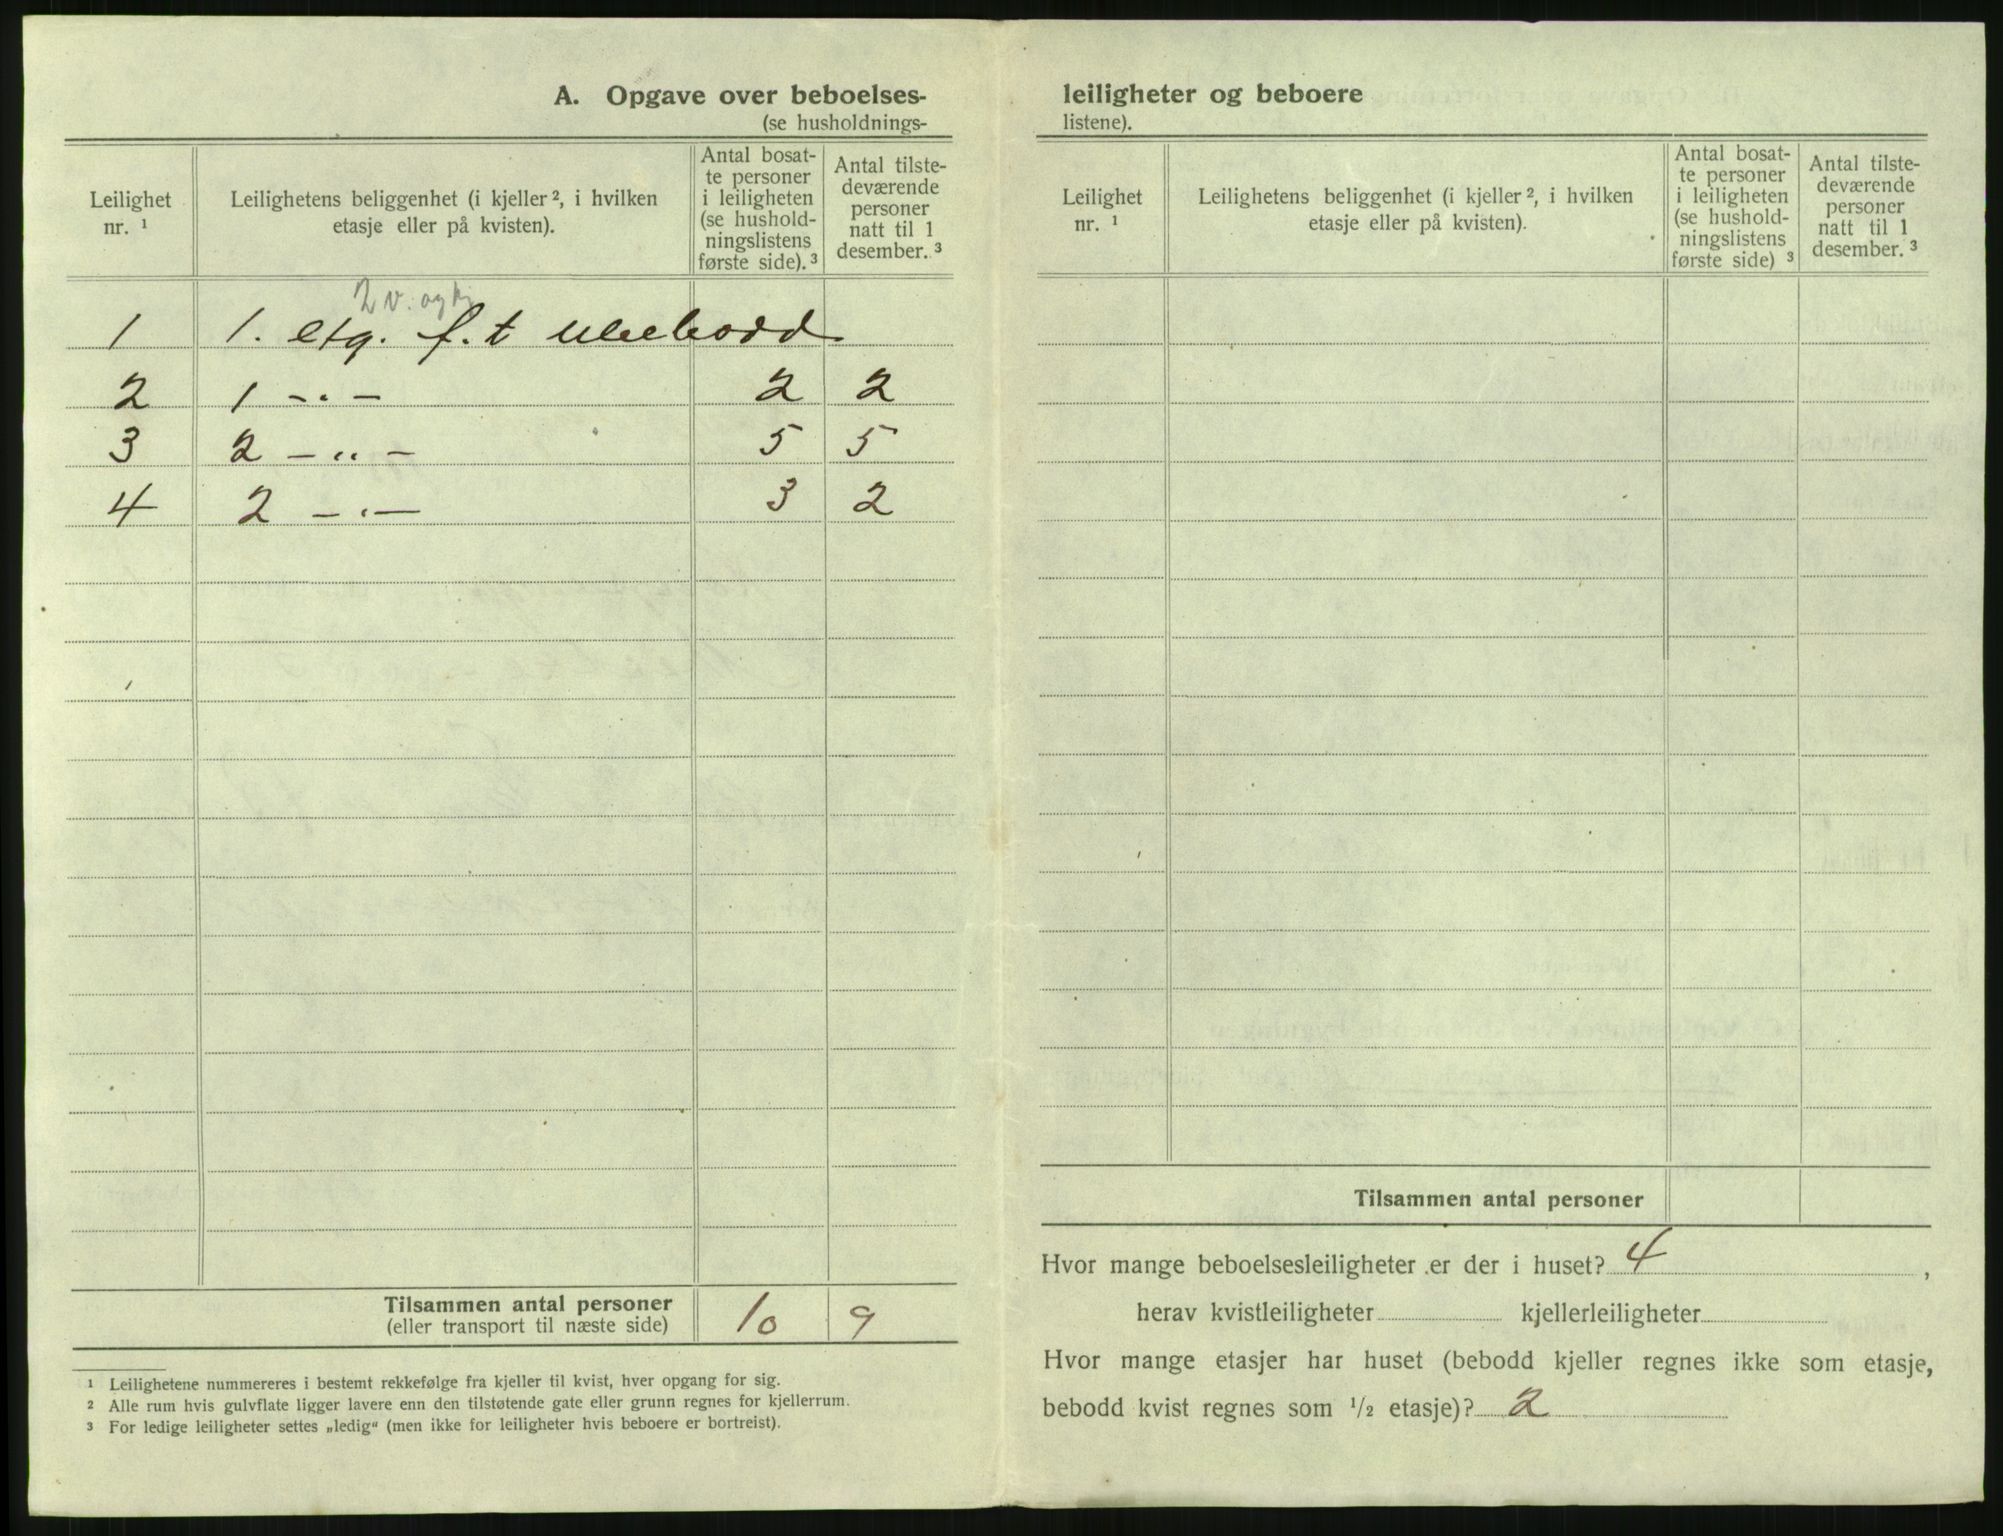 A. Opgave over beboelses-
(se husholdnings-
Leilighet
nr. ¹
Leilighetens beliggenhet (i kjeller ², i hvilken
etasje eller på kvisten).
Antal bosat-
te personer
i leiligheten
(se hushold-
ningslistens
første side). ³
Antal tilste-
deværende
personer
natt til 1
desember. ³
2 v. og kj
1 1. etg. f.t ubebodd
2 1 -"- 2 2
3 2 -"- 5 5
4 2 -"- 3 2
Tilsammen antal personer 10 9
(eller transport til næste side)
¹ Leilighetene nummereres i bestemt rekkefølge fra kjeller til kvist, hver opgang for sig.
² Alle rum hvis gulvflate ligger lavere enn den tilstøtende gate eller grunn regnes for kjellerrum.
³ For ledige leiligheter settes „ledig“ (men ikke for leiligheter hvis beboere er bortreist).
leiligheter og beboere
listene).
Leilighet
nr. ¹
Leilighetens beliggenhet (i kjeller ², i hvilken
etasje eller på kvisten).
Antal bosat-
te personer
i leiligheten
(se hushold-
ningslistens
første side) ³
Antal tilste-
deværende
personer
natt til 1
desember. ³
Tilsammen antal personer
Hvor mange beboelsesleiligheter er der i huset? 4 ,
herav kvistleiligheter kjellerleiligheter
Hvor mange etasjer har huset (bebodd kjeller regnes ikke som etasje,
bebodd kvist regnes som ¹/₂ etasje)? 2